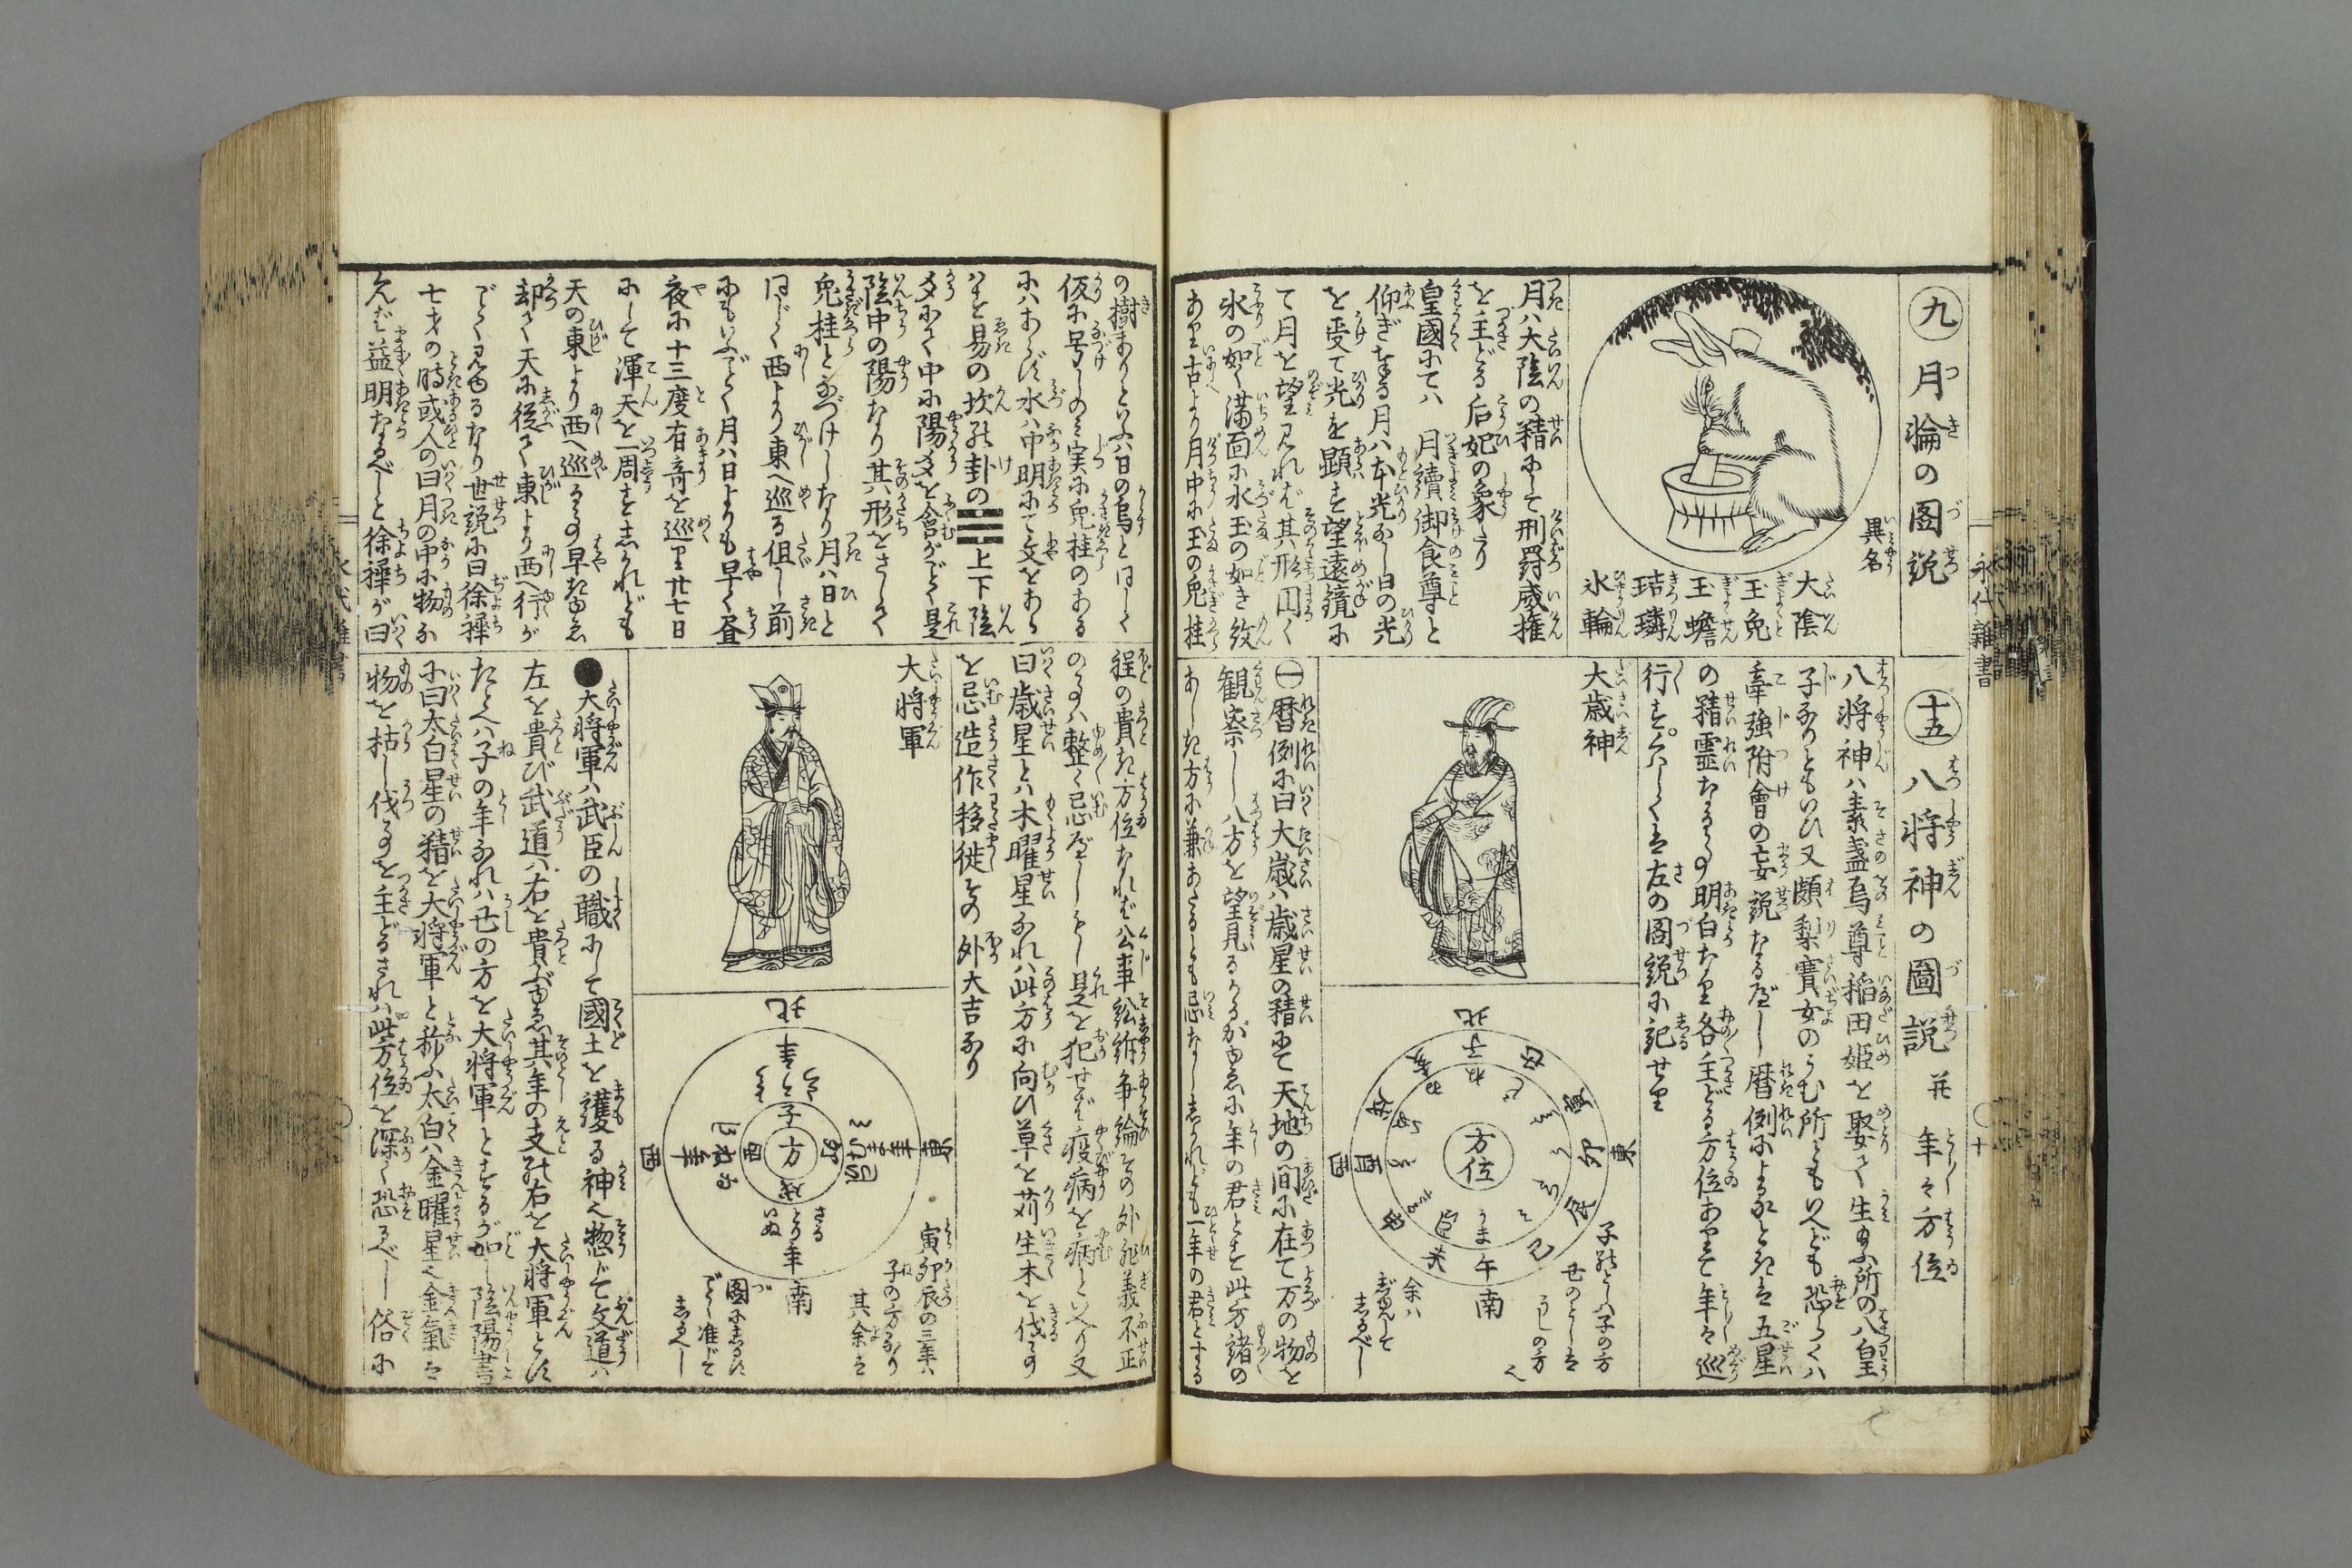 九 月輪の図説
異名
大陰
玉兎
玉蟾
玤璘
氷輪
月ハ大陰の精にして刑罸威権
を主どる后妃の象たり
皇國にてハ 月續御食尊と
仰ぎ奉る月ハ本光なし日の光
を受て光を顕す望遠鏡に
て月を望見れば其形円く
氷の如く満面に水玉の如き紋
あり古より月中に玉の兎桂
の樹ありといふハ日の烏と同じく
仮に号しのミ実に兎桂のある
にハあらず水ハ中明にて文をあら
はす易の坎の卦の☵上下陰
爻にて中に陽爻を含がごとく是
陰中の陽なり其形をさして
兎桂と名づけしなり月ハ日と
同じく西より東へ巡る但し前
にもいふごとく月ハ日よりも早く昼
夜に十三度有奇を巡り廿七日
にして渾天を一周すしかれども
天の東より西へ巡る事早きゆゑ
却て天に従て東より西へ行が
ごとく見ゆるなり世説に曰徐穉
七才の時或人の曰月の中に物な
くんば益明なるべしと徐穉が曰
十五 八将神の圖説 并 年々方位
八将神ハ素盞烏尊稲田姫を娶て生給ふ所の八皇
子なりともいひ又頗梨賽女のうむ所ともいへども恐らくハ
牽強附會の妄説なるべし暦例によるときは五星
の精霊なる事明白なり各主どる方位ありて年々巡
行す。くハしくは左の図説に記せり
大歳神
方位
北
東
南
西
子
丑
寅
卯
辰
巳
午
未
申
酉
戌
亥
子のとしハ子の方
丑のとしは
うしの方
余ハ
しるべし
㊀暦例に曰大歳ハ歳星の精にて天地の間に在て万の物を
観察し八方を望見るゆゑに年の君とす此方諸の
あしき方に兼あたるとも忌なししかれども一年の君とする
程の貴き方位なれば公事訟訴争論その外非義不正
の事ハ整く忌べしもし是を犯せば疫病を病といへり又
曰歳星とハ木曜星なれハ此方に向ひ草を苅生木を伐事
を忌造作移徙その外大吉なり
大将軍
方
北
東
南
西
子
卯
午
酉
寅卯辰の三年ハ
子の方なり
其余は
圖にしるす
ごとし准じて
しるべし
●大将軍ハ武臣の職にして國土を護る神也惣じて文道ハ
左を貴び武道ハ右を貴ぶゆゑ其年の支の右を大将軍とす
たとへハ子の年なれハ丑の方を大将軍とするが如し陰陽書
に曰太白星の精を大将軍と称ふ太白ハ金曜星也金氣は
物を枯し伐事を主どるされハ此方位を深く恐るべし俗に
永代雜書
十